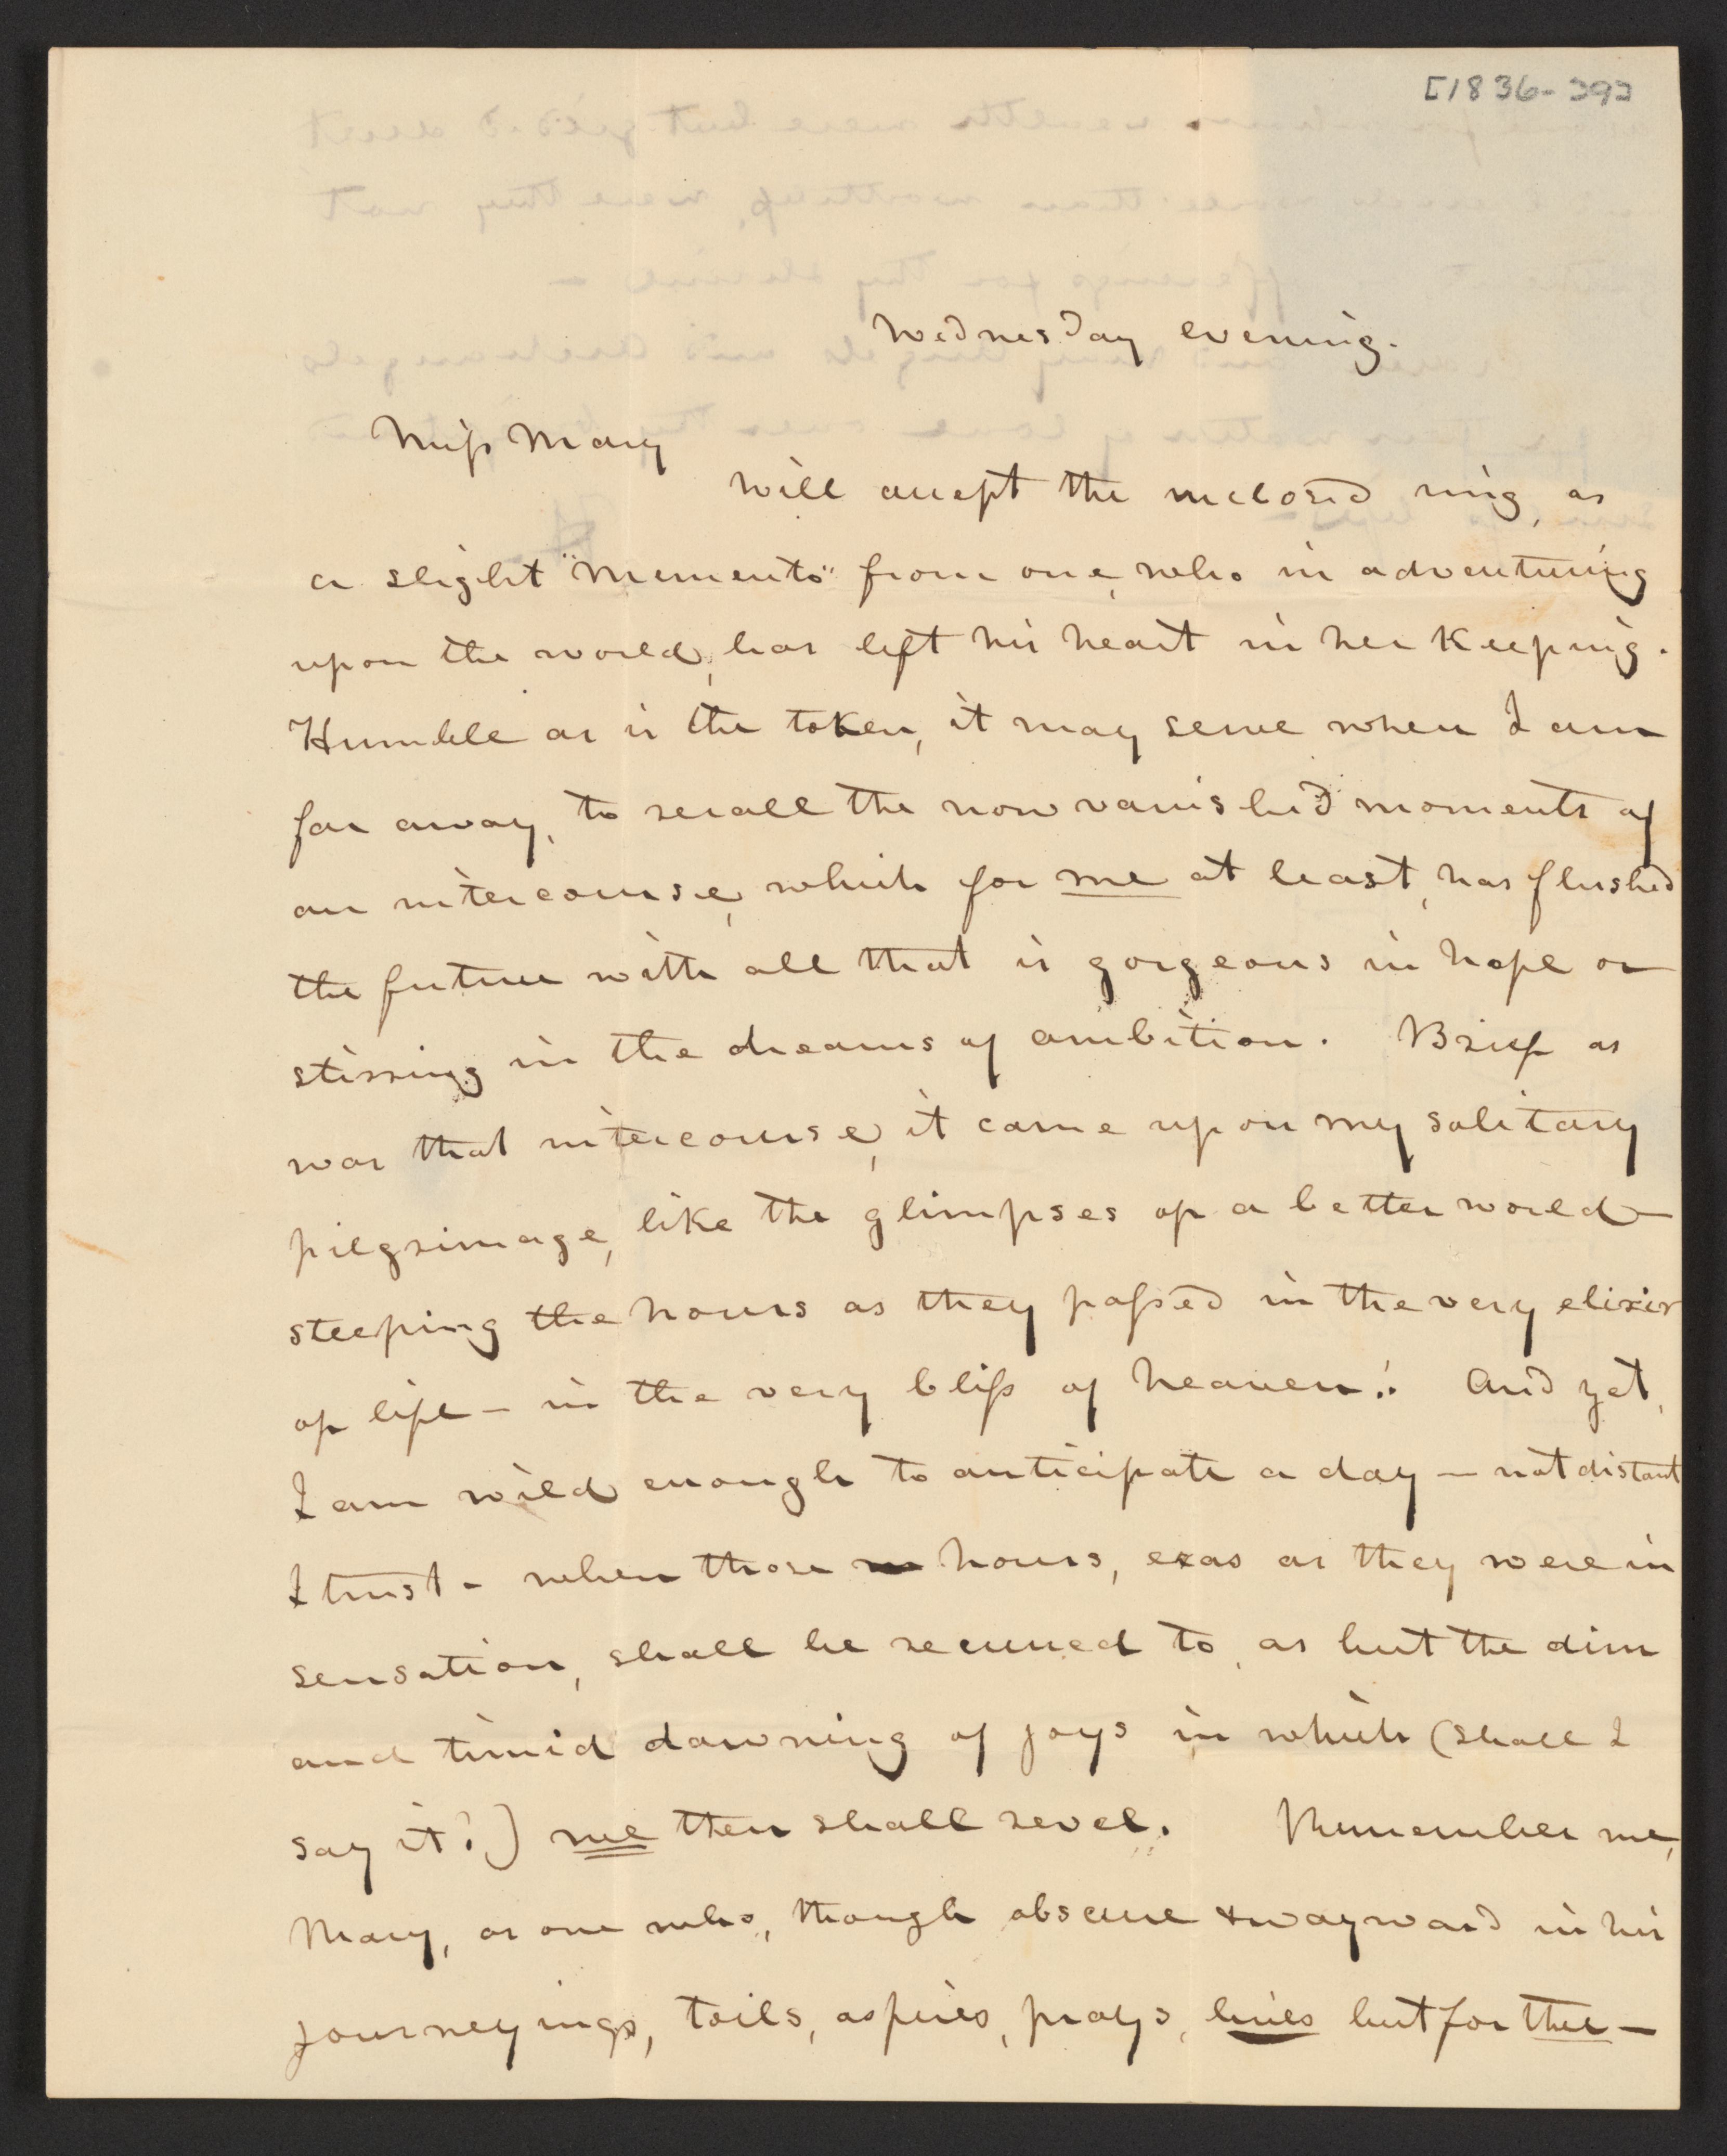 [1836-39]
Wednesday evening.
Miss Mary
will accept the inclosed ring, as
a slight "memento" from one, who in adventuring
upon the world, has left his heart in her keeping.
Humble as is the token, it may serve when I am
far away, to recall the now vanished moments of
an intercourse, which for me at least, has flushed
the future with all that is gorgeous in hope or
stirring in the dreams of ambition. Brief as
was that intercourse, it came upon my solitary
pilgrimage, like the glimpses of a better world—
steeping the hours as they passed in the very elixir
of life — in the very bliss of heaven! And yet,
I am wild enough to anticipate a day — not distant
I trust - when those hours, eras as they were in
sensation, shall be recurred to, as but the dim
and timid dawning of joys in which (shall I
say it?) we then shall revel. Remember me,
Mary, as one who, though obscure & wayward in his
journeyings, toils, aspires, prays, lives but for thee —